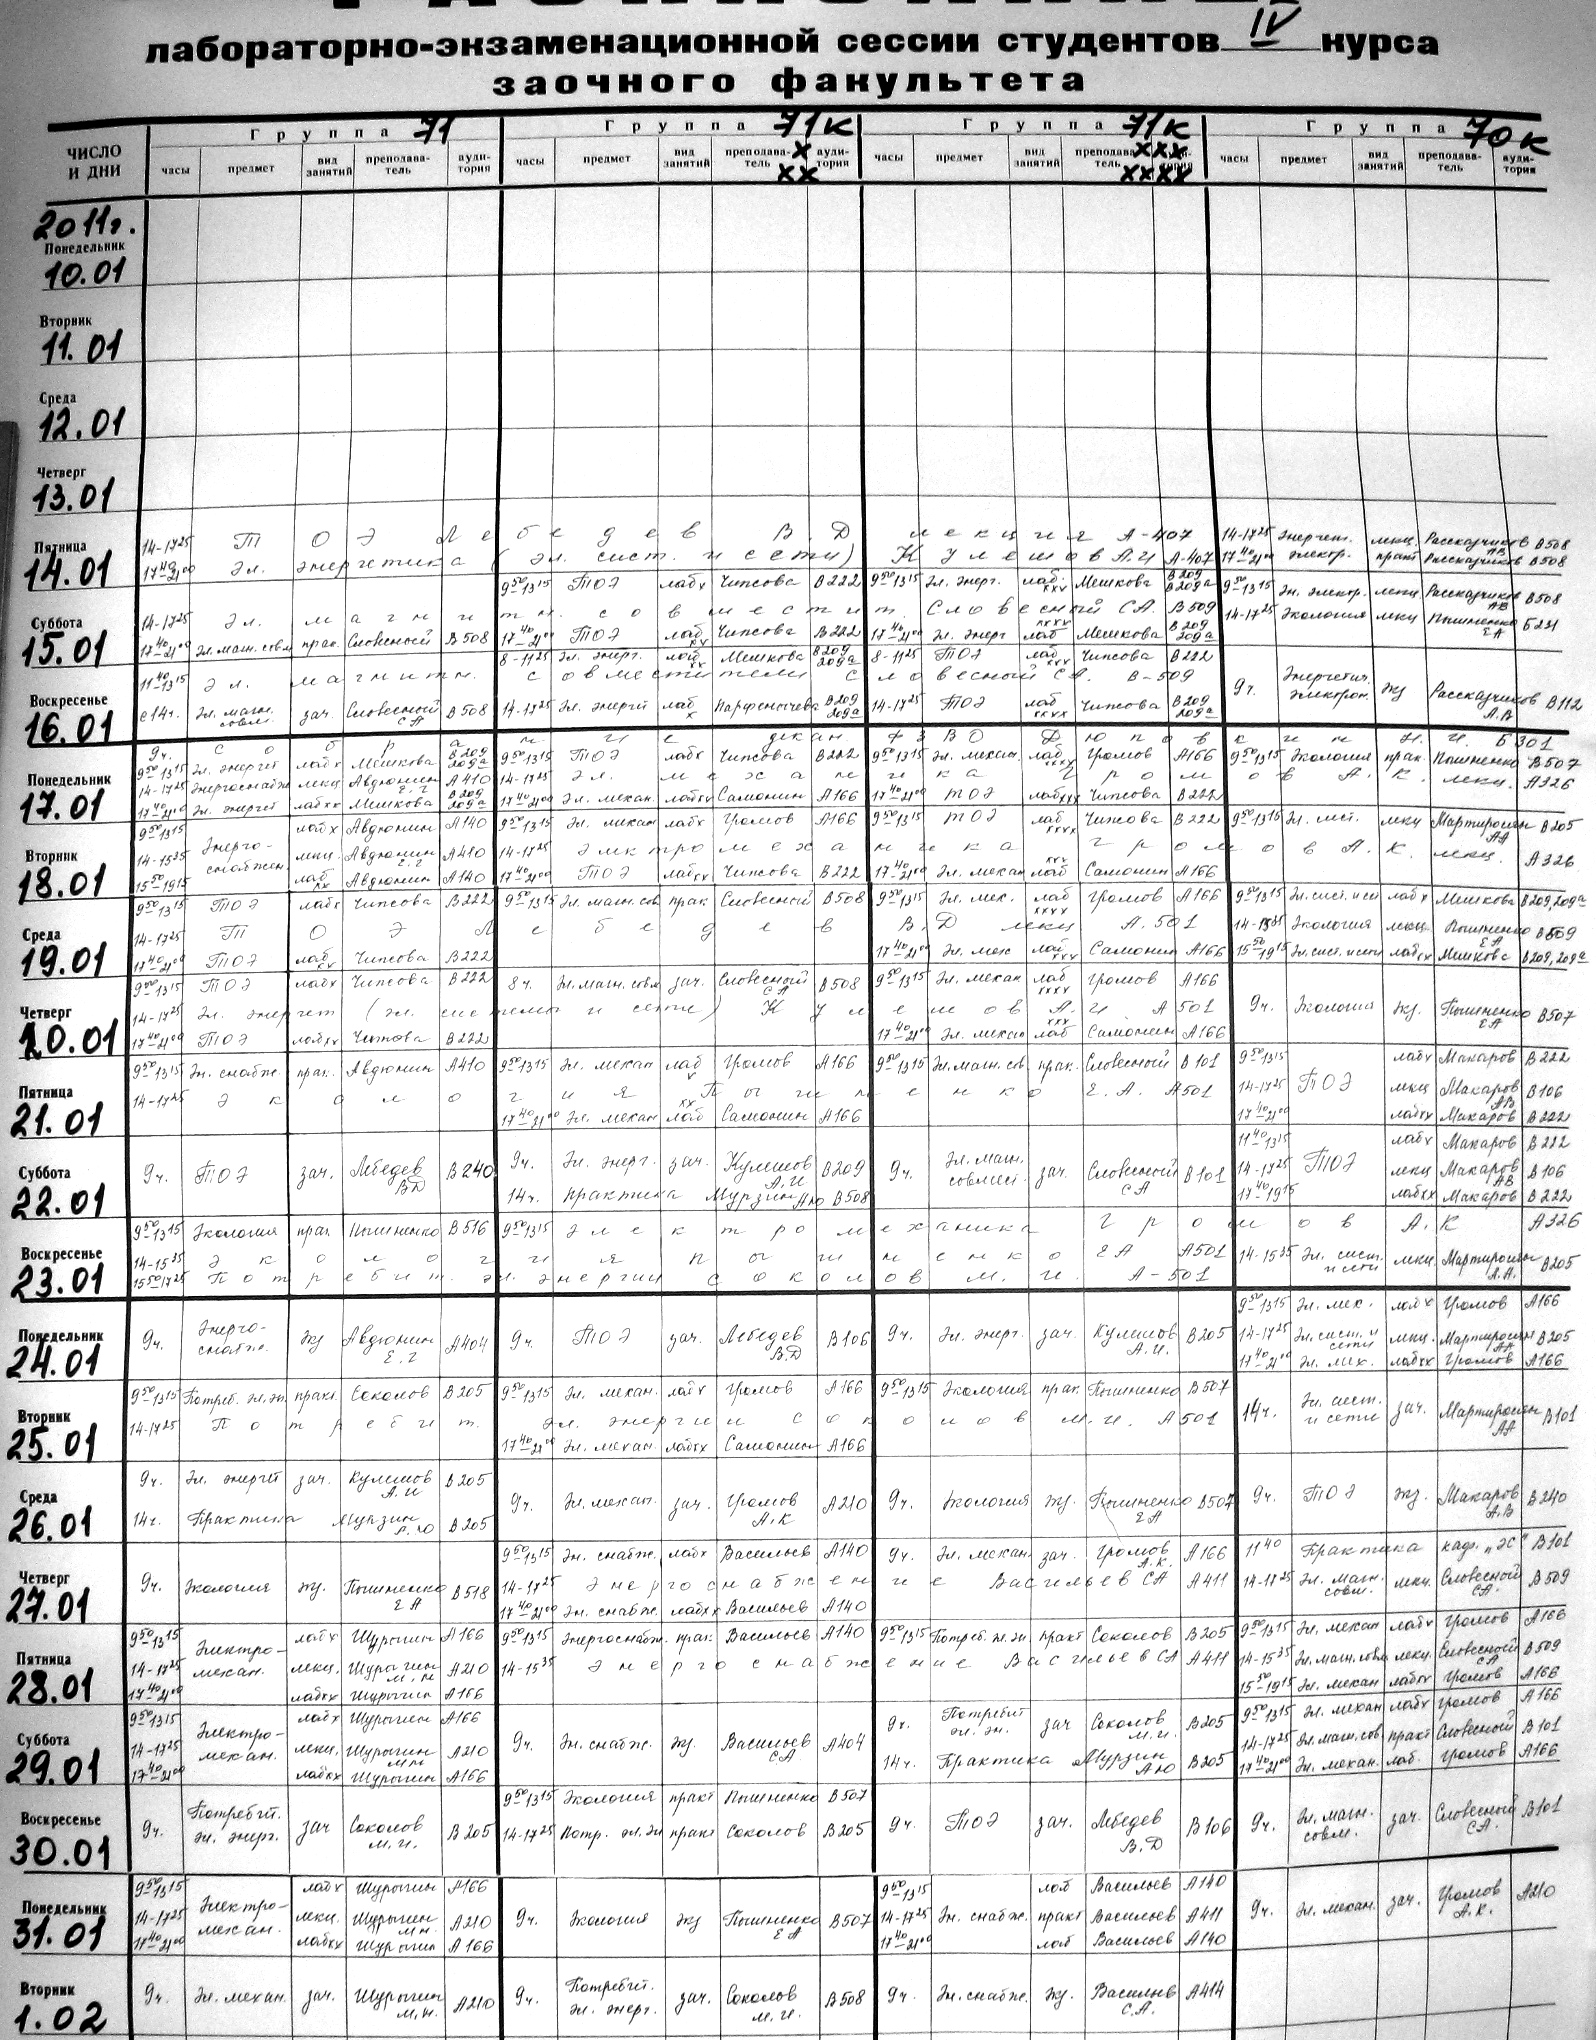 лабораторно-экзаменационной сессии студентов IV курса
заочного факультета
ЧИСЛО И ДНИ
Группа 71
Группа 71к x xx
Группа 71к xxx xxxx
Группа 70к
часы предмет вид занятий преподава-тель ауди-тория часы предмет вид занятий преподава-тель ауди-тория часы предмет вид занятий часы предмет вид занятий преподава-тель ауди-тория
2011г.
Понедельник
10.01
Вторник
11.01
Среда
12.01
Четверг
13.01
Пятница
14.01
14-17²⁵ ТОЭ Лебедев В.Д лекция А-407 14-17²⁵ Энергет. лекц. Рассказчиков АВ В508
17⁴⁰-21⁰⁰ Эл. энергетика (эл. сист. и сети) Кулешов А.И А-407 17⁴⁰-21⁰⁰ электр. практ Рассказчиков В508
Суббота
15.01
9⁵⁰-13¹⁵ ТОЭ лабx Чипсова В222 9⁵⁰-13¹⁵ Эл. энерг. лаб. xxx Мешкова В209 В209а 9⁵⁰-13¹⁵ Эн. электр. лекц Рассказчиков АВ В508
14-17²⁵ Эл. магнитн. совместит. Словесный СА. В509 14-17²⁵ Экология лекц Пышненко ЕА Б231
17⁴⁰-21⁰⁰ Эл.магн.совм прак. Словесной В508 17⁴⁰-21⁰⁰ ТОЭ лаб xx Чипсова В222 17⁴⁰-21⁰⁰ Эл. энерг xxxx лаб Мешкова В209 209а
Воскресенье
16.01
8-11²⁵ Эл. энерг. лаб xx Мешкова В209 209а 8-11²⁵ ТОЭ лаб xxx Чипсова В222
11⁴⁰-13¹⁵ Эл. магнитн. совместители Словесной СА. В-509 9ч. Энергетич. электрон. экз Рассказчиков А.В В112
с 14ч. Эл. магн. совм. зач. Словесной СА В508 14-17²⁵ Эл. энерги лаб x Парфенычева В209 209а 14-17²⁵ ТОЭ лаб xxxx Чипсова В209 209а
Понедельник
17.01
9ч. собрание декан ФЗВО Дюповкин Н.И. Б301
9⁵⁰-13¹⁵ Эл. энергет лабx Мешкова В209 209а 9⁵⁰-13¹⁵ ТОЭ лабx Чипсова В222 9⁵⁰-13¹⁵ Эл. механ. лаб xxxx Громов А166 9⁵⁰-13¹⁵ Экология прак. Пышненко В507
14-17²⁵ Энергоснабже лекц Авдюнин Е.Г А410 14-17²⁵ Эл. механика Громов А.К. лекц. А326
17⁴⁰-21⁰⁰ Эл. энергет лабxx Мешкова В209 209а 17⁴⁰-21⁰⁰ Эл. механ. лабxx Самонин А166 17⁴⁰-21⁰⁰ ТОЭ лабxxx Чипсова В222
Вторник
18.01
9⁵⁰-13¹⁵ лабx Авдюнин А140 9⁵⁰-13¹⁵ Эл. механ лабx Громов А166 9⁵⁰-13¹⁵ ТОЭ лаб xxxx Чипсова В222 9⁵⁰-13¹⁵ Эл. сист. лекц Мартиросян АА В205
14-15³⁵ Энерго-снабжен лекц. Авдюнин Е.Г А410 14-17²⁵ Электромеханика Громов А.К. лекц. А326
15⁵⁰-19¹⁵ лаб xx Авдюнин А140 17⁴⁰-21⁰⁰ ТОЭ лабxx Чипсова В222 17⁴⁰-21⁰⁰ Эл. механ xxx лаб Самонин А166
Среда
19.01
9⁵⁰-13¹⁵ ТОЭ лабx Чипсова В222 9⁵⁰-13¹⁵ Эл.магн.сов прак Словесной В508 9⁵⁰-13¹⁵ Эл. мех. лаб xxxx Громов А166 9⁵⁰-13¹⁵ Эл.сист.и се лабx Мешкова В209, 209а
14-17²⁵ ТОЭ Лебедев В.Д лекц А.501 14-15³⁵ Экология лекц Пышненко ЕА В509
17⁴⁰-21⁰⁰ ТОЭ лаб xx Чипсова В222 17⁴⁰-21⁰⁰ Эл. мех лаб xxx Самонин А166 15⁵⁰-19¹⁵ Эл.сист.и сети лабxx Мешкова В209, 209а
Четверг
20.01
9⁵⁰-13¹⁵ ТОЭ лабx Чипсова В222 8ч. Эл.магн.совм зач. Словесной СА В508 9⁵⁰-13¹⁵ Эл. механ лаб xxxx Громов А166
14-17²⁵ Эл. энергет (эл. системы и сети) Кулешов А.И А501 9ч. Экология экз. Пышненко ЕА В507
17⁴⁰-21⁰⁰ ТОЭ лабxx Чипсова В222 17⁴⁰-21⁰⁰ Эл. механ xxx лаб Самонин А166
Пятница
21.01
9⁵⁰-13¹⁵ Эн. снабж. прак. Авдюнин А410 9⁵⁰-13¹⁵ Эл. механ лаб x Громов А166 9⁵⁰-13¹⁵ Эл.магн.св. прак. Словесной В101 9⁵⁰-13¹⁵ лабx Макаров В222
14-17²⁵ Экология Пышненко Е.А. А501 14-17²⁵ ТОЭ лекц Макаров АВ В106
17⁴⁰-21⁰⁰ Эл. механ xx лаб Самонин А166 17⁴⁰-21⁰⁰ лабxx Макаров В222
Суббота
22.01
11⁴⁰-13¹⁵ лабx Макаров В222
9ч. ТОЭ зач. Лебедев ВД В240 9ч. Эл. энерг. зач. Кулешов А.И В209 9ч. Эл. магн. совмест. зач. Словесной СА В101 14-17²⁵ ТОЭ лекц Макаров АВ В106
14ч. практика Мурзин АЮ В508 17⁴⁰-19¹⁵ лабxx Макаров В222
Воскресенье
23.01
9⁵⁰-13¹⁵ Экология прак. Пышненко В516 9⁵⁰-13¹⁵ электромеханика Громов А.К А326
14-15³⁵ экология пышненко ЕА А501 14-15³⁵ Эл. сист. и сети лекц. Мартиросян А.А. В205
15⁵⁰-17²⁵ Потребит. эл. энергии Соколов М.И. А-501
Понедельник
24.01
9⁵⁰-13¹⁵ Эл. мех. лабx Громов А166
9ч. Энерго-снабже. экз Авдюнин Е.Г А404 9ч. ТОЭ зач. Лебедев В.Д В106 9ч. Эл. энерг. зач. Кулешов А.И. В205 14-17²⁵ Эл.сист.и сети лекц. Мартиросян АА В205
17⁴⁰-21⁰⁰ Эл. мех. лабxx Громов А166
Вторник
25.01
9⁵⁰-13¹⁵ Потреб.эл.эн. практ. Соколов В205 9⁵⁰-13¹⁵ Эл. механ. лабx Громов А166 9⁵⁰-13¹⁵ Экология прак. Пышненко В507
14-17²⁵ Потребит. эл. энергии Соколов М.И. А501 14ч. Эл. сист. и сети зач. Мартиросян АА В101
17⁴⁰-21⁰⁰ Эл. механ. лабxx Самонин А166
Среда
26.01
9ч. Эл. энергет зач. Кулешов А.И В205
9ч. Эл. механ. зач. Громов А.К А210 9ч. Экология экз. Пышненко ЕА В507 9ч. ТОЭ экз. Макаров А.В В240
14ч. Практика Мурзин А.Ю В205
Четверг
27.01
9⁵⁰-13¹⁵ Эн. снабж. лабx Васильев А140 9ч. Эл. механ. зач. Громов А.К. А166 11⁴⁰ Практика каф. „ЭС“ В101
9ч. Экология экз. Пышненко ЕА В518 14-17²⁵ Энергоснабжение Васильев СА А411 14-17²⁵ Эл. магн. совм. лекц. Словесной СА. В509
17⁴⁰-21⁰⁰ Эн. снабж. лабxx Васильев А140
Пятница
28.01
9⁵⁰-13¹⁵ лабx Шурыгин А166 9⁵⁰-13¹⁵ Энергоснабж. прак. Васильев А140 9⁵⁰-13¹⁵ Потреб.эл.эн практ Соколов В205 9⁵⁰-13¹⁵ Эл. механ лабx Громов А166
14-17²⁵ Электро-механ. лекц. Шурыгин М.Н А210 14-15³⁵ Энергоснабжение Васильев СА А411 14-15³⁵ Эл.магн.совм лекц Словесной СА В509
17⁴⁰-21⁰⁰ лабxx Шурыгин А166 15⁵⁰-19¹⁵ Эл. механ лабxx Громов А166
Суббота
29.01
9⁵⁰-13¹⁵ лабx Шурыгин А166 9ч. Потребит эл. эн. зач Соколов М.И. В205 9⁵⁰-13¹⁵ Эл. механ лабx Громов А166
14-17²⁵ Электро-механ. лекц. Шурыгин МН А210 9ч. Эн. снабж. экз. Васильев СА. А404 14-17²⁵ Эл.магн.сов практ Словесной В101
17⁴⁰-21⁰⁰ лабxx Шурыгин А166 14ч. Практика Мурзин АЮ В205 17⁴⁰-21⁰⁰ Эл. механ. лаб. Громов А166
Воскресенье
30.01
9⁵⁰-13¹⁵ Экология практ Пышненко В507
9ч. Потребит. эл. энерг. зач Соколов М.И. В205 14-17²⁵ Потр. эл.эн практ Соколов В205 9ч. ТОЭ зач. Лебедев В.Д В106 9ч. Эл. магн. совм. зач. Словесной СА. В101
Понедельник
31.01
9⁵⁰-13¹⁵ лабx Шурыгин А166 9⁵⁰-13¹⁵ лаб Васильев А140
14-17²⁵ Электро-механ. лекц. Шурыгин М.Н. А210 9ч. Экология экз Пышненко ЕА В507 14-17²⁵ Эн. снабж. практ Васильев А411 9ч. Эл. механ. зач. Громов А.К. А210
17⁴⁰-21⁰⁰ лабxx Шурыгин А166 17⁴⁰-21⁰⁰ лаб Васильев А140
Вторник
1.02
9ч. Эл. механ. зач. Шурыгин М.Н. А210 9ч. Потребит. эл. энерг. зач. Соколов М.И. В508 9ч. Эн.снабже. экз. Васильев С.А. А414